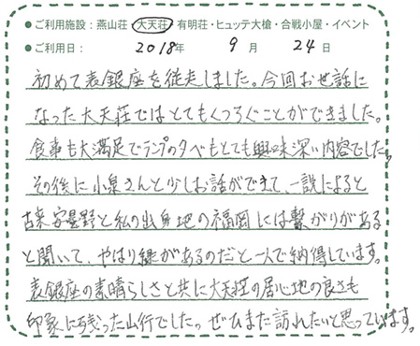 ●ご利用施設:燕山荘・大天荘・有明荘・ヒュッテ大槍・合戦小屋・イベント
●ご利用日: 2018年 9月 24日
初めて表銀座を従走しました。今回お世話に
なった大天荘ではとてもくつろぐことができました。
食事も大満足でランプの夕べもとても興味深い内容でした。
その後に小泉さんと少しお話ができて、一説によると
古来安曇野と私の出身地の福岡には繋がりがある
と聞いて、やはり縁があるのだと一人で納得しています。
表銀座の素晴らしさと共に大天荘の居心地の良さも
印象に残った山行でした。ぜひまた訪れたいと思っています。